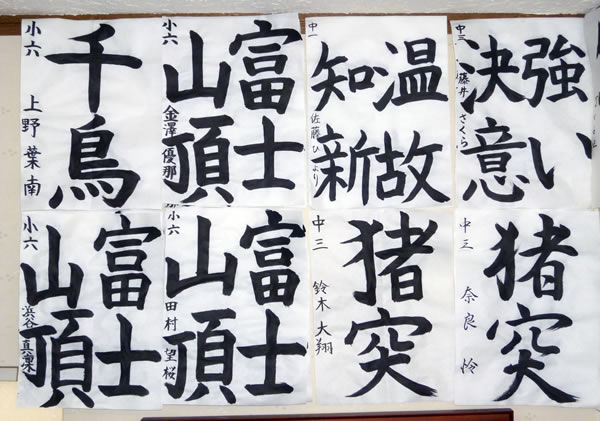 千鳥
小六 上野葉南
富士
山頂
小六 金澤優那
温故
知新
中一 佐藤ひより
強い
決意
中三 藤井さくら
富士
山頂
小六 浜谷
富士
山頂
小六 田村望桜
猪突
中三 鈴木大翔
猪突
中三 奈良怜